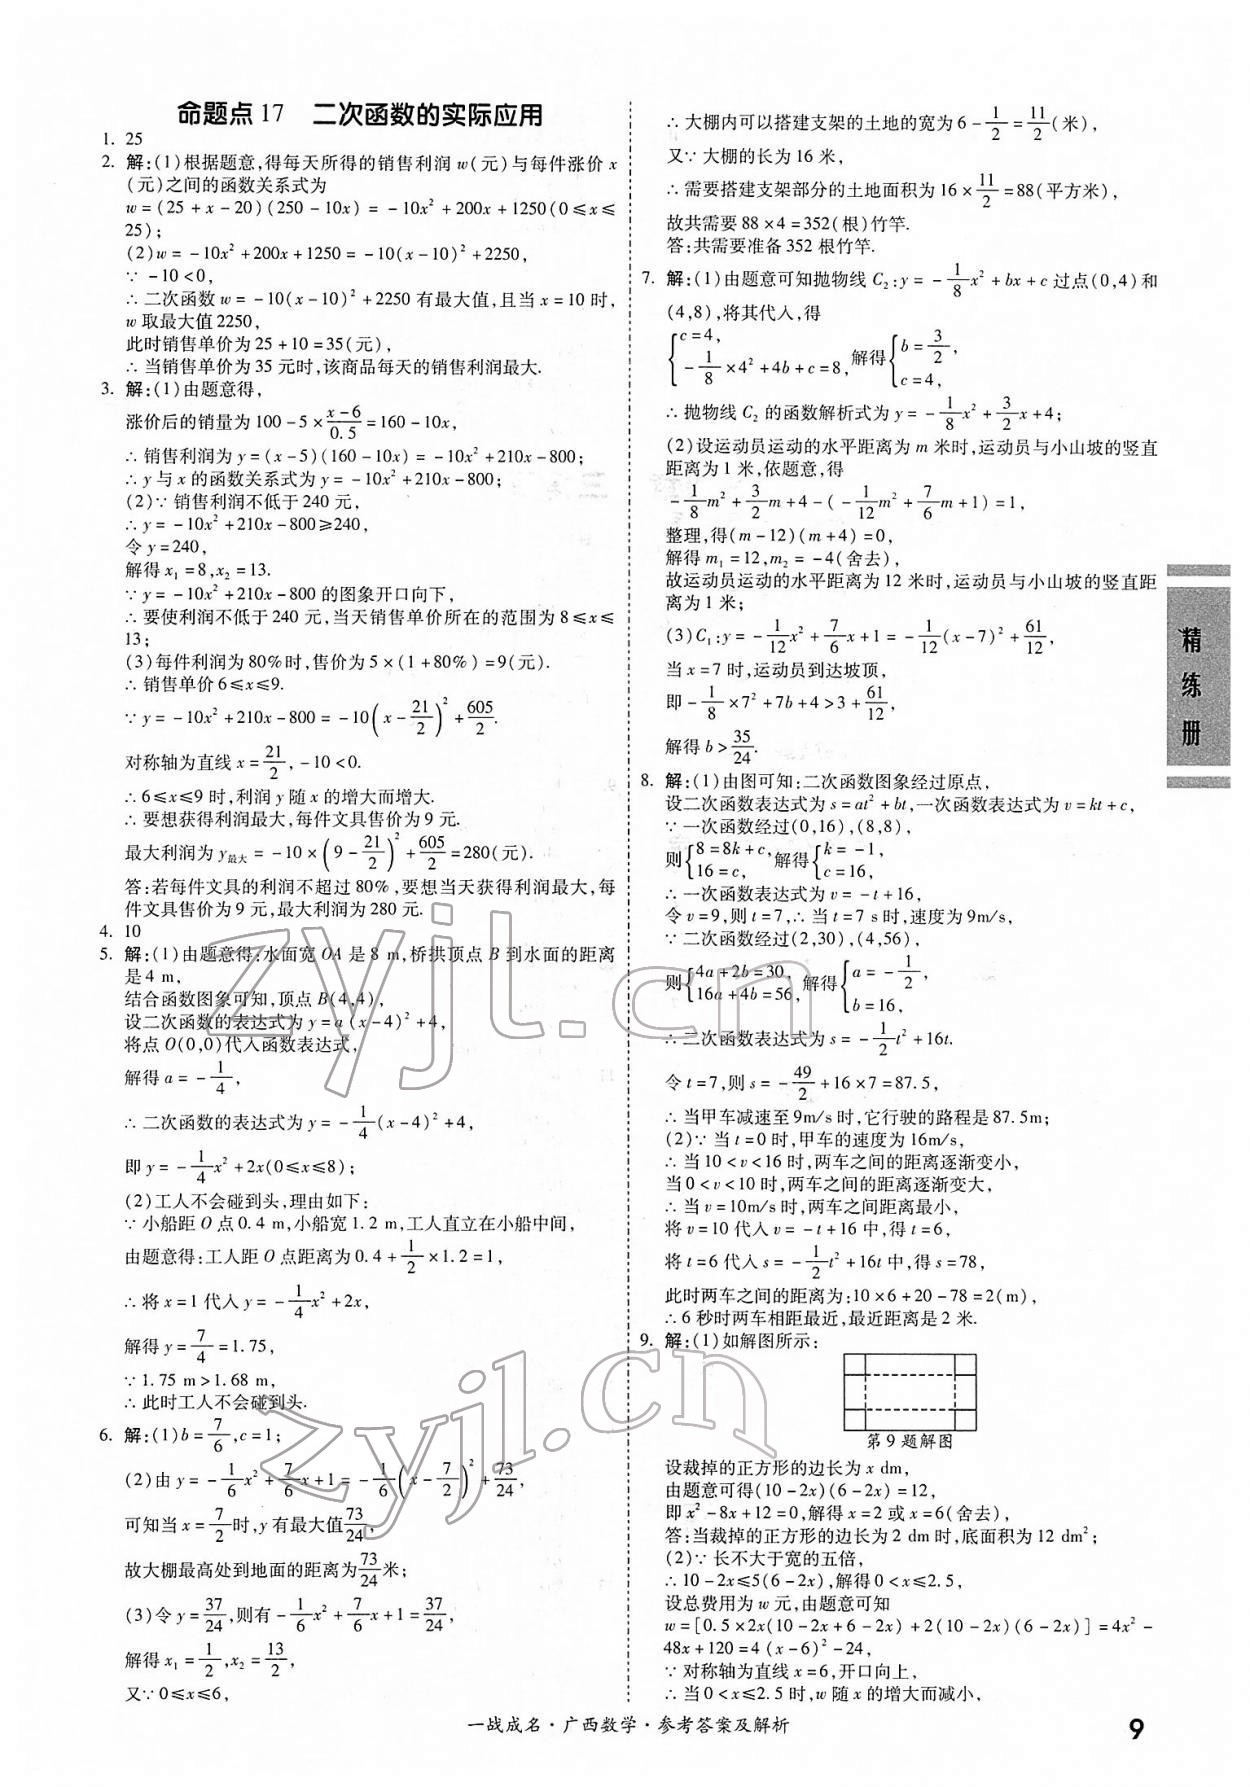 命题点17 二次函数的实际应用
1. 25
2. 解:(1)根据题意,得每天所得的销售利润w(元)与每件涨价x
(元)之间的函数关系式为
w=(25+x-20)(250-10x)=-10x²+200x+1250(0≤x≤
25);
(2)w=-10x²+200x+1250=-10(x-10)²+2250,
∵-10<0,
∴二次函数w=-10(x-10)²+2250有最大值,且当x=10时,
w取最大值2250,
此时销售单价为25+10=35(元),
∴当销售单价为35元时,该商品每天的销售利润最大.
3. 解:(1)由题意得,
涨价后的销量为100-5×(x-6)/0.5=160-10x,
∴销售利润为y=(x-5)(160-10x)=-10x²+210x-800;
∴y与x的函数关系式为y=-10x²+210x-800;
(2)∵销售利润不低于240元,
∴y=-10x²+210x-800≥240,
令y=240,
解得x₁=8,x₂=13.
∵y=-10x²+210x-800的图象开口向下,
∴要使利润不低于240元,当天销售单价所在的范围为8≤x≤
13;
(3)每件利润为80%时,售价为5×(1+80%)=9(元).
∴销售单价6≤x≤9.
∵y=-10x²+210x-800=-10(x-21/2)²+605/2.
对称轴为直线x=21/2,-10<0.
∴6≤x≤9时,利润y随x的增大而增大.
∴要想获得利润最大,每件文具售价为9元.
最大利润为y最大=-10×(9-21/2)²+605/2=280(元).
答:若每件文具的利润不超过80%,要想当天获得利润最大,每
件文具售价为9元,最大利润为280元.
4. 10
5. 解:(1)由题意得:水面宽OA是8 m,桥拱顶点B到水面的距离
是4 m,
结合函数图象可知,顶点B(4,4),
设二次函数的表达式为y=a(x-4)²+4,
将点O(0,0)代入函数表达式,
解得a=-1/4,
∴二次函数的表达式为y=-1/4(x-4)²+4,
即y=-1/4x²+2x(0≤x≤8);
(2)工人不会碰到头,理由如下:
∵小船距O点0.4 m,小船宽1.2 m,工人直立在小船中间,
由题意得:工人距O点距离为0.4+1/2×1.2=1,
∴将x=1代入y=-1/4x²+2x,
解得y=7/4=1.75,
∵1.75 m>1.68 m,
∴此时工人不会碰到头.
6. 解:(1)b=7/6,c=1;
(2)由y=-1/6x²+7/6x+1=-1/6(x-7/2)²+73/24,
可知当x=7/2时,y有最大值73/24,
故大棚最高处到地面的距离为73/24米;
(3)令y=37/24,则有-1/6x²+7/6x+1=37/24,
解得x₁=1/2,x₂=13/2,
又∵0≤x≤6,
∴大棚内可以搭建支架的土地的宽为6-1/2=11/2(米),
又∵大棚的长为16米,
∴需要搭建支架部分的土地面积为16×11/2=88(平方米),
故共需要88×4=352(根)竹竿.
答:共需要准备352根竹竿.
7. 解:(1)由题意可知抛物线C₂:y=-1/8x²+bx+c过点(0,4)和
(4,8),将其代入,得
{c=4, -1/8×4²+4b+c=8, 解得{b=3/2, c=4,
∴抛物线C₂的函数解析式为y=-1/8x²+3/2x+4;
(2)设运动员运动的水平距离为m米时,运动员与小山坡的竖直
距离为1米,依题意,得
-1/8m²+3/2m+4-(-1/12m²+7/6m+1)=1,
整理,得(m-12)(m+4)=0,
解得m₁=12,m₂=-4(舍去),
故运动员运动的水平距离为12米时,运动员与小山坡的竖直距
离为1米;
(3)C₁:y=-1/12x²+7/6x+1=-1/12(x-7)²+61/12,
当x=7时,运动员到达坡顶,
即-1/8×7²+7b+4>3+61/12,
解得b>35/24.
8. 解:(1)由图可知:二次函数图象经过原点,
设二次函数表达式为s=at²+bt,一次函数表达式为v=kt+c,
∵一次函数经过(0,16),(8,8),
则{8=8k+c, 16=c, 解得{k=-1, c=16,
∴一次函数表达式为v=-t+16,
令v=9,则t=7,∴当t=7 s时,速度为9m/s,
∵二次函数经过(2,30),(4,56),
则{4a+2b=30, 16a+4b=56, 解得{a=-1/2, b=16,
∴二次函数表达式为s=-1/2t²+16t.
令t=7,则s=-49/2+16×7=87.5,
∴当甲车减速至9m/s时,它行驶的路程是87.5m;
(2)∵当t=0时,甲车的速度为16m/s,
∴当10<v<16时,两车之间的距离逐渐变小,
当0<v<10时,两车之间的距离逐渐变大,
∴当v=10m/s时,两车之间距离最小,
将v=10代入v=-t+16中,得t=6,
将t=6代入s=-1/2t²+16t中,得s=78,
此时两车之间的距离为:10×6+20-78=2(m),
∴6秒时两车相距最近,最近距离是2米.
9. 解:(1)如解图所示:
第9题解图
设裁掉的正方形的边长为x dm,
由题意可得(10-2x)(6-2x)=12,
即x²-8x+12=0,解得x=2或x=6(舍去),
答:当裁掉的正方形的边长为2 dm时,底面积为12 dm²;
(2)∵长不大于宽的五倍,
∴10-2x≤5(6-2x),解得0<x≤2.5,
设总费用为w元,由题意可知
w=[0.5×2x(10-2x+6-2x)+2(10-2x)(6-2x)]=4x²-
48x+120=4(x-6)²-24,
∵对称轴为直线x=6,开口向上,
∴当0<x≤2.5时,w随x的增大而减小,
精练册
一战成名·广西数学·参考答案及解析
9
zyjl.cn
zyjl.cn